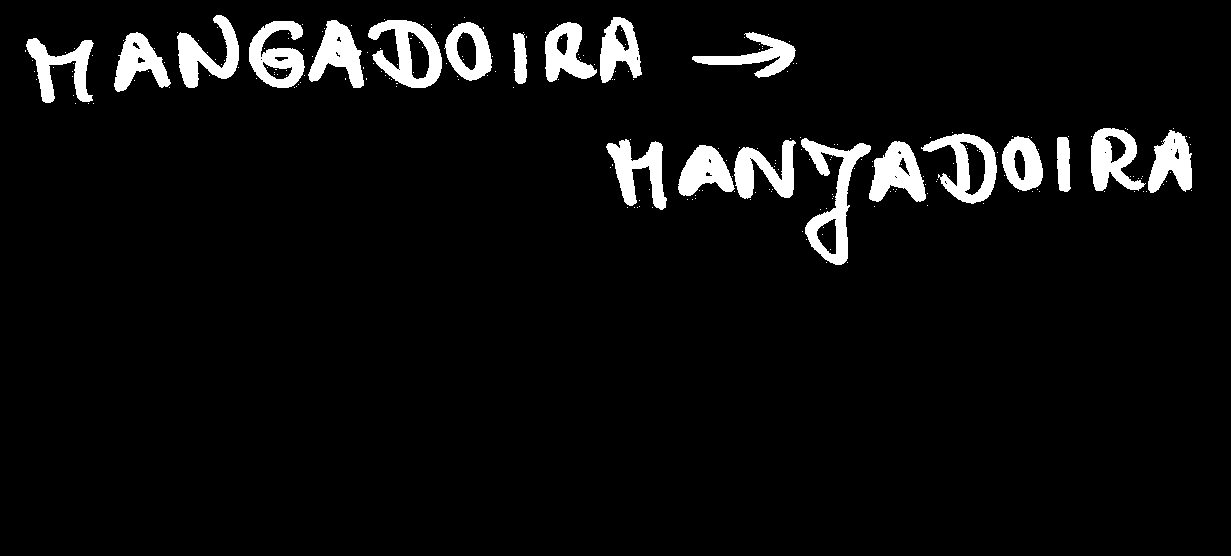 MANGADOIRA →
MANJADOIRA